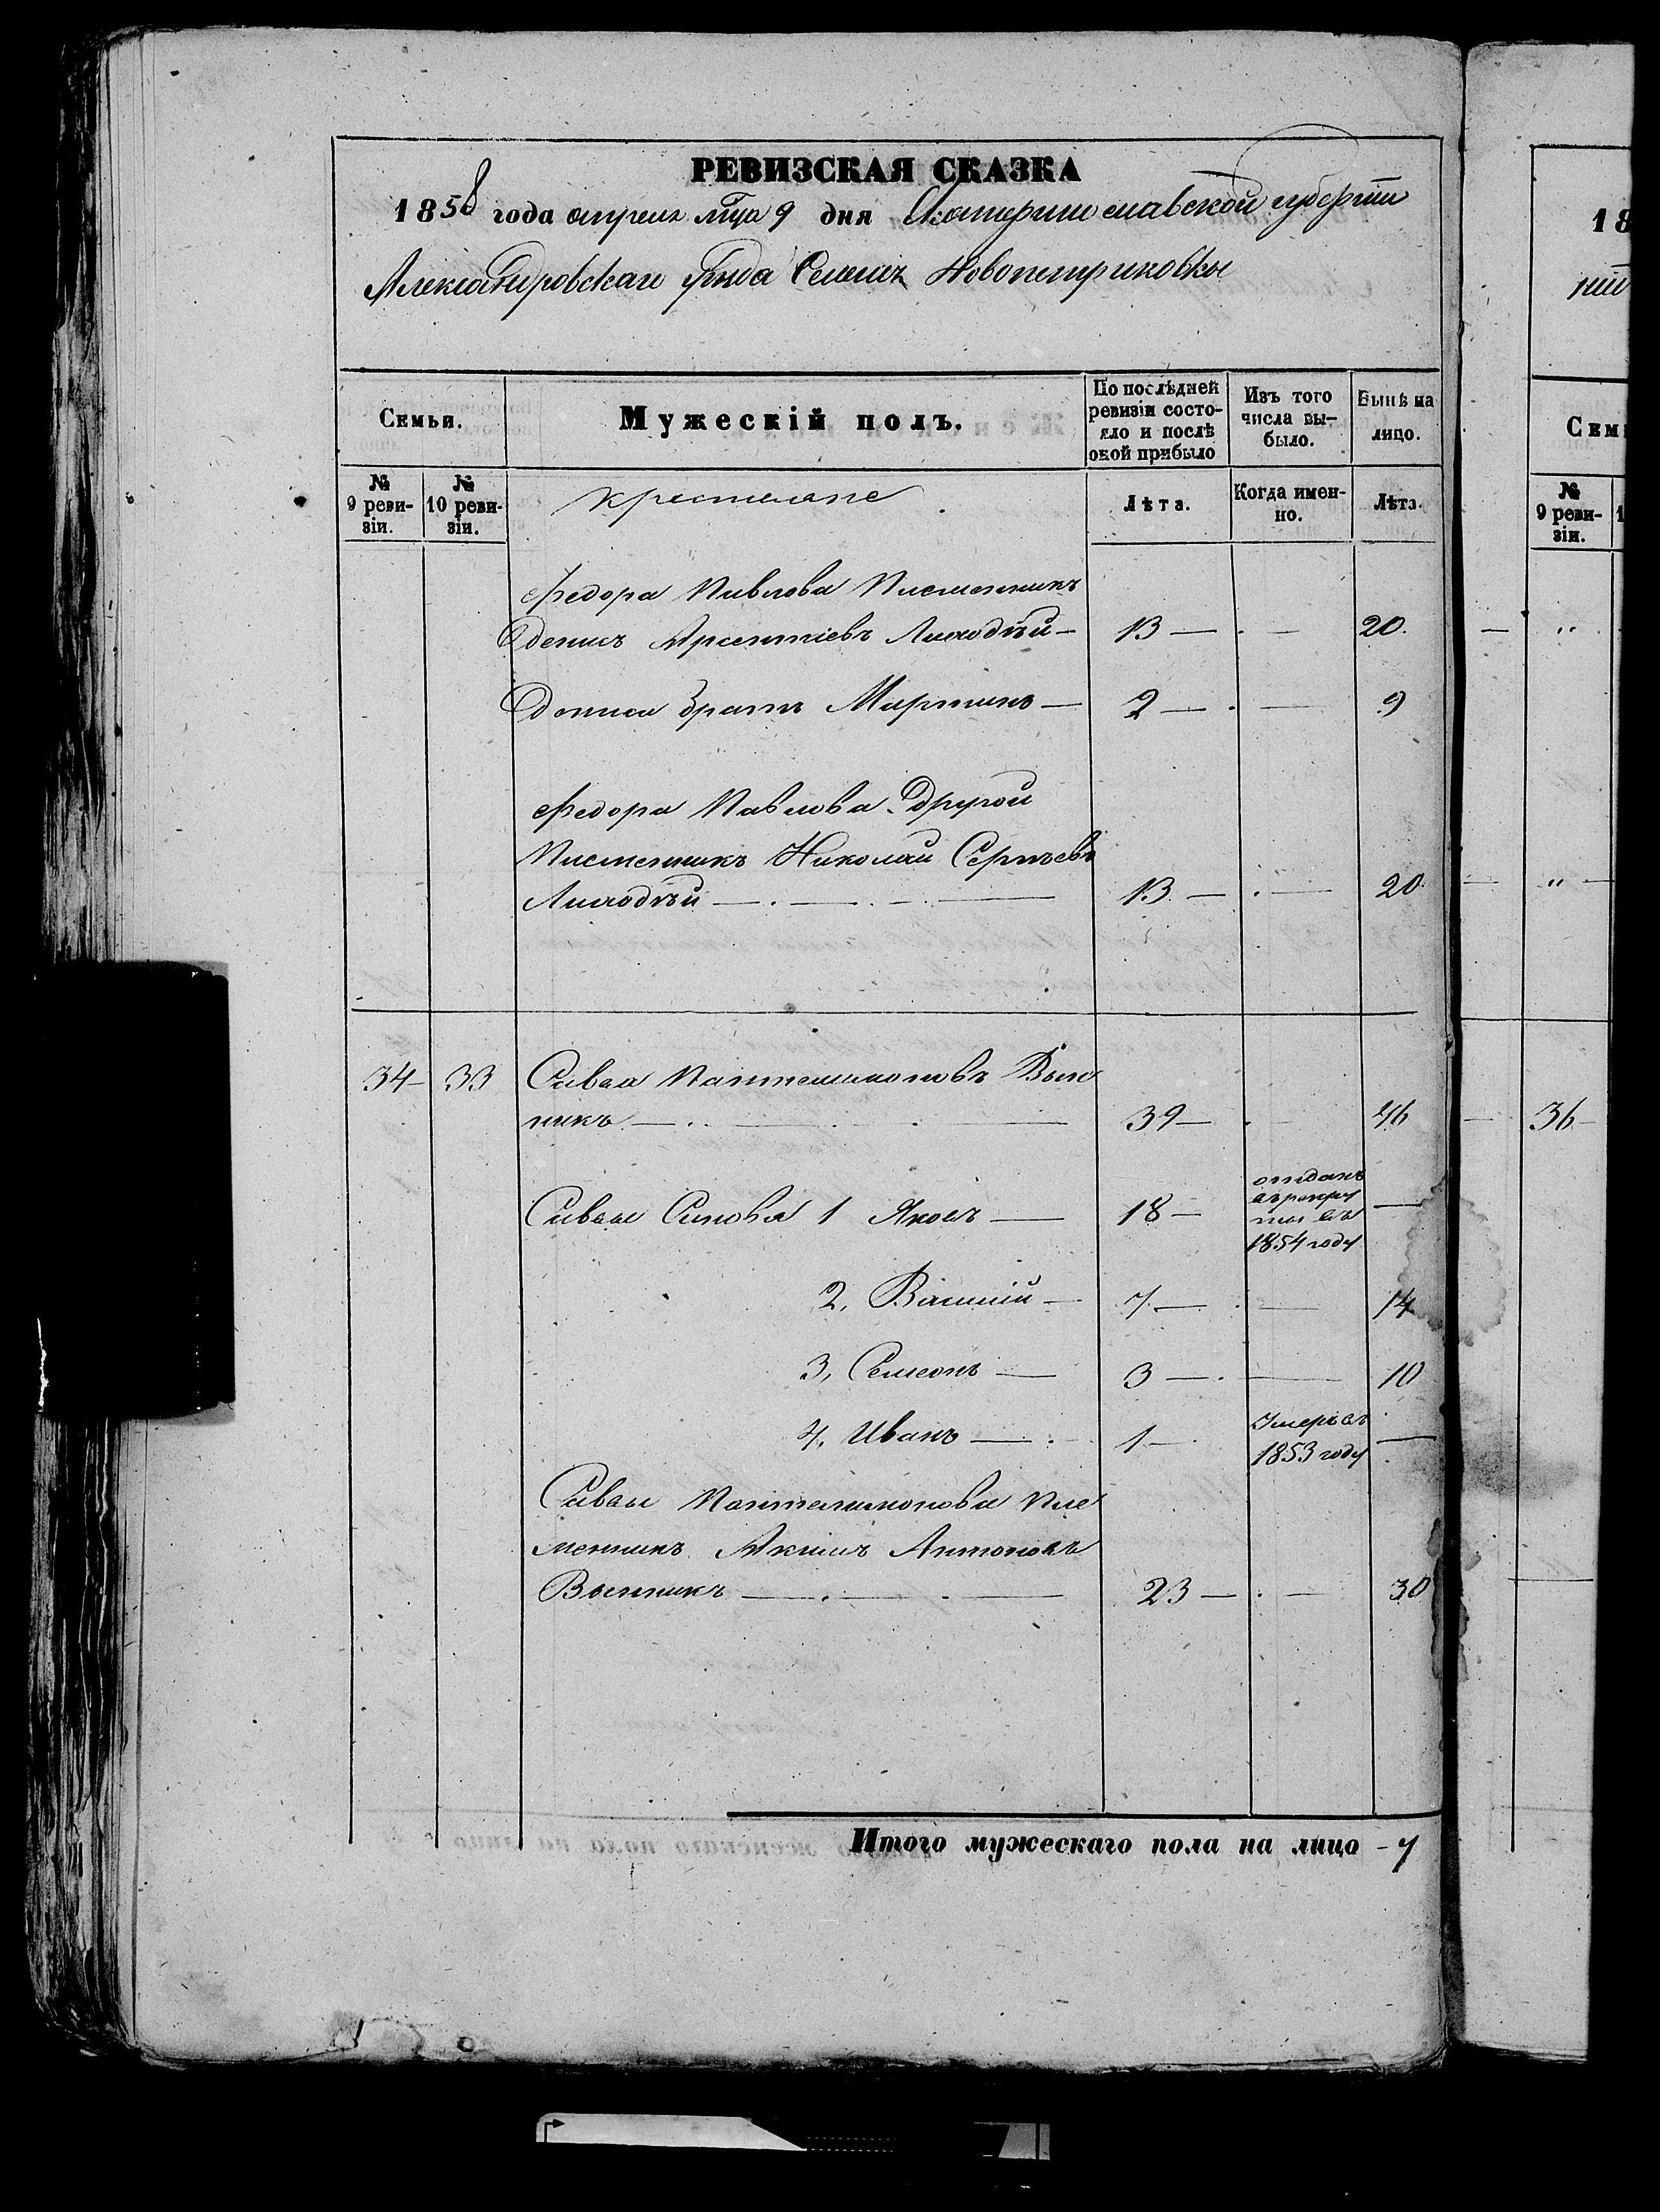 РЕВИЗСКАЯ СКАЗКА
1858 года апреля мца 9 дня Екатеринославской губерніи
Александровскаго уезда Селенія Новопетриковки
Семьи.
Мужескій полъ.
По послѣдней ревизіи состояло и послѣ оной прибыло
Изъ того числа выбыло.
Нынѣ на лицо.
№ 9 ревизіи.
№ 10 ревизіи.
крестьяне
Лѣта.
Когда именно.
Лѣта.
Федора Павлова Племенникъ
Денисъ Арсентіевъ Лиходѣй — 13 — 20.
Дениса братъ Мартинъ — 2 — 9
Федора Павлова другой
Племенникъ Николай Сергѣевъ
Лиходѣй — 13 — 20
34 — 33 Савва Пантелимоновъ Вын
никъ — 39 — 46
Саввы Синовья 1 Яковъ — 18 — отданъ въ рекруты въ 1854 году —
2, Василій — 7 — 14
3, Семеонъ — 3 — 10
4, Иванъ — 1 — Умеръ въ 1853 году —
Саввы Пантелимонова Пле
менникъ Акимъ Антоновъ
Вынникъ — 23 — 30
Итого мужескаго пола на лицо - 7
18
ніи
Сем
№ 9 ревизіи.
1
"
"
36